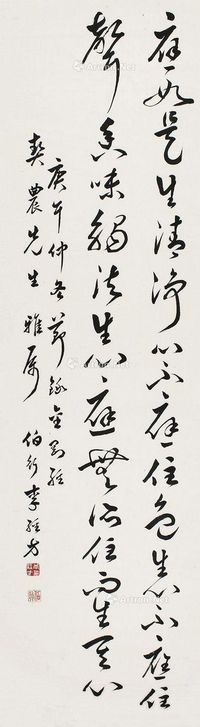 應如是生清淨心不應住色生心不應住
聲香味觸法生心應無所住而生其心
庚午仲冬節錄金剛經
契農先生雅属
伯行李經方